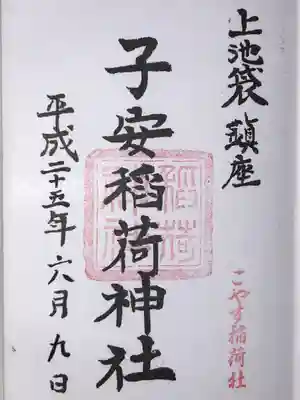 上池袋鎮座
こやす稲荷社
子安稲荷神社
平成二十五年六月九日